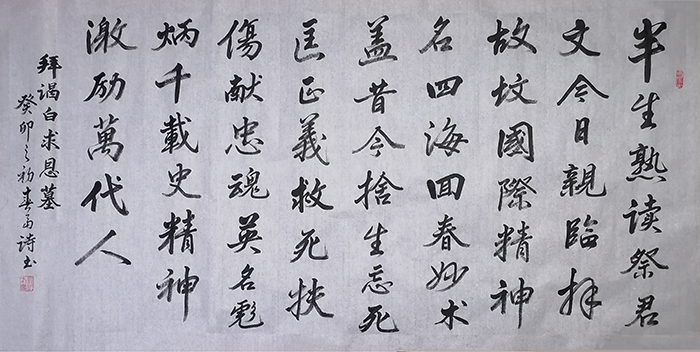 半生熟读祭君
文今日親臨拜
故坟國際精神
名四海回春妙术
盖昔今捨生忘死
匡正義救死扶
傷献忠魂英名彪
炳千載史精神
激励萬代人
拜谒白求恩墓
癸卯之初春诗书